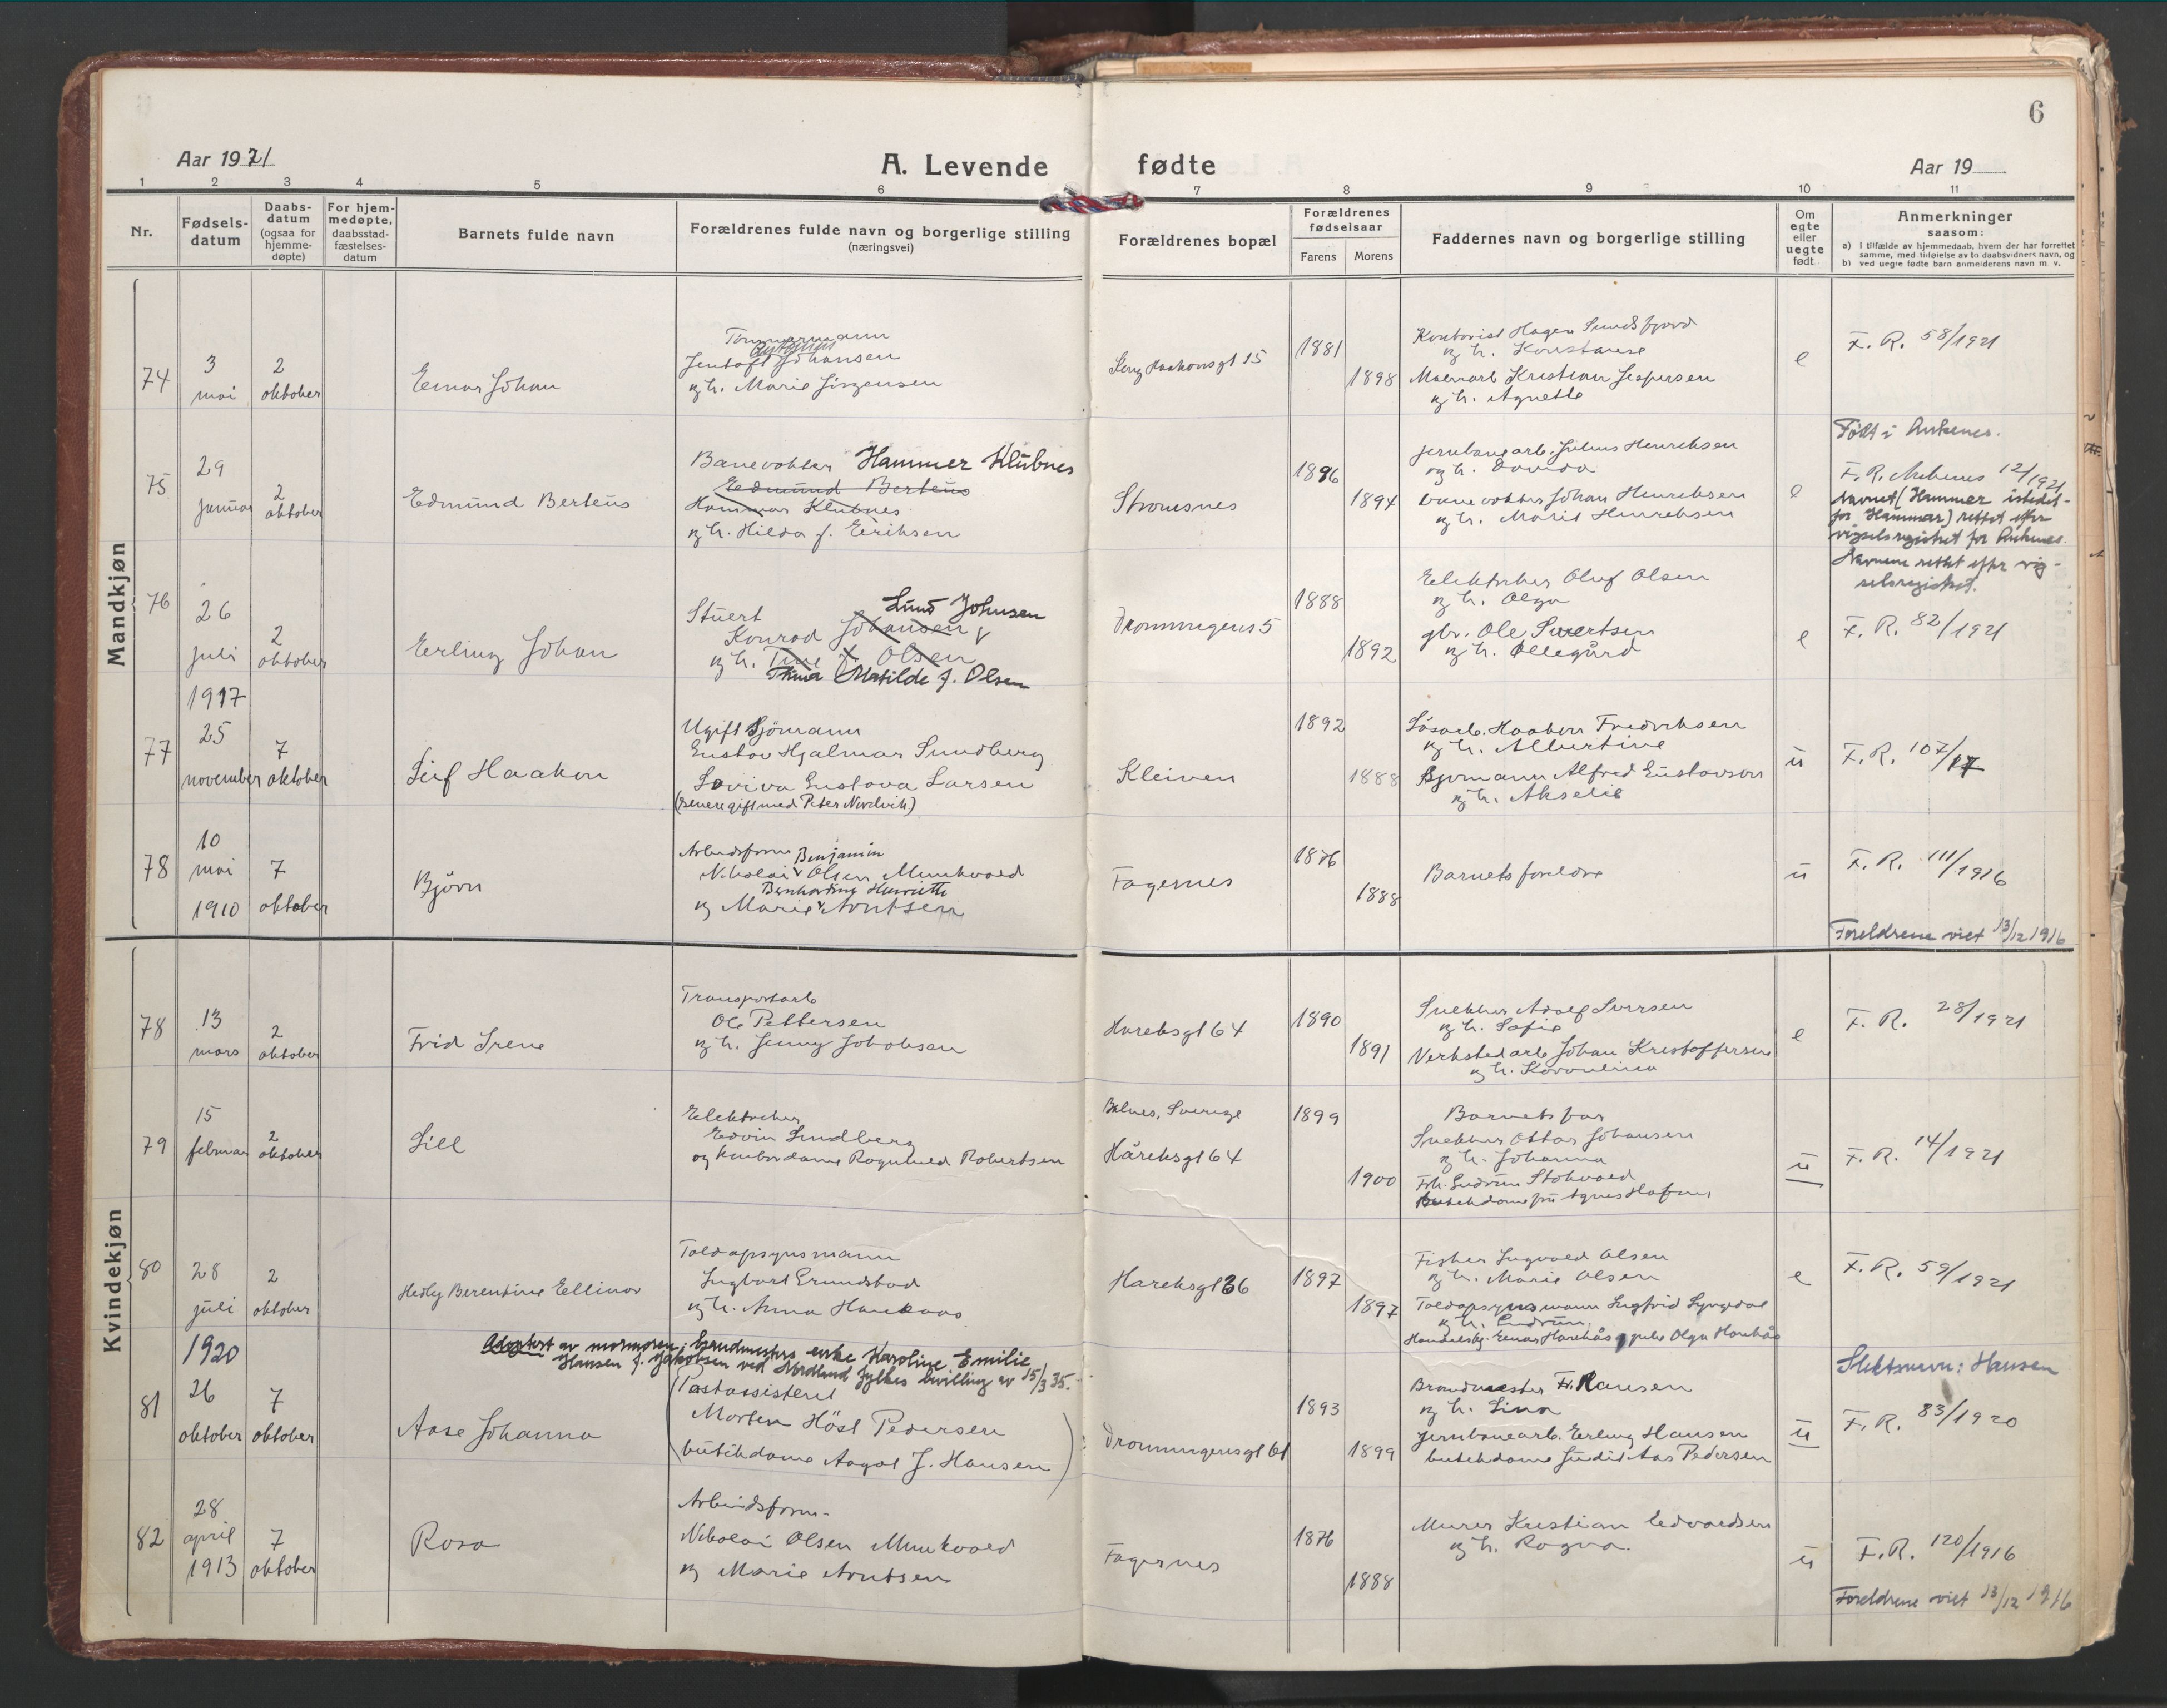 6
Aar 1921
A. Levende fødte
Aar 19
1 2 3 4 5 6 7 8 9 10 11
Nr.
Fødsels-
datum
Daabs-
datum
(ogsaa for
hjemme-
døpte)
For hjem-
medøpte,
daabsstad-
fæstelses-
datum
Barnets fulde navn
Forældrenes fulde navn og borgerlige stilling
(næringsvei)
Forældrenes bopæl
Forældrenes
fødselsaar
Farens Morens
Faddernes navn og borgerlige stilling
Om
egte
eller
uegte
født
Anmerkninger
saasom:
a) i tilfælde av hjemmedaab, hvem der har forrettet
samme, med tilføielse av to daabsvidners navn, og
b) ved uegte fødte barn anmelderens navn m. v.
Mandkjøn
74
3
mai
2
oktober
Einar Johan
Tømmermann
Jentoft Johansen
og h. Marie Jörgensen
Kong Haakonsgt 15
1881
1898
Hagen Sundsfjord
og h. Konstanse
Malerarb Kristian Jespersen
og h. Agnette
e
F. R. 58/1921
75
29
januar
2
oktober
Edmund Berteus
Banevokter Hammer Klubnes
Edmund Berteus
Hammar Klubnes
og h. Hilda f. Eriksen
Stromsnes
1896
1894
Jernbanearb. Julius Henriksen
og h.
Banevokter Johan Henriksen
og h. Marit Henriksen
e
Født i Ankenes.
F. R. Ankenes 12/1921
Navnet (Hammer istedet-
for Hammar) rettet efter
vigselsregistret for Ankenes.
76
26
juli
1917
2
oktober
Erling Johan
Stuert Lund Johnsen
Konrad Johansen
og h. Tine f. Olsen
Matilde f. Olsen
Dronningens 5
1888
1892
Elektriker Oluf Olsen
og h. Olga
gbr. Ole Sivertsen
og h. Ellegård
e
Navnene rettet efter vig-
selsregistret.
F. R. 82/1921
77
25
november
7
oktober
Leif Haakon
Ugift Sjömann
Gustav Hjalmar Sundberg
Lovise Gustava Larsen
(senere gift med Peter Nordvik)
Kleiven
1892
1888
Haakon Fredriksen
og h. Albertine
Sjømann Alfred Gustavson
og h. Akselie
u
F. R. 107/17
78
10
mai
1910
7
oktober
Björn
Arbeidsform Benjamin
Nikolai Olsen Munkvold
Bernhardine Henriette
og Marie Arntsen
Fagernes
1876
1888
Barnets foreldre
u
F. R. 111/1916
Foreldrene viet 13/12 1916
Kvindekjøn
78
13
mars
2
oktober
Frid Irene
Transportarb
Ole Pettersen
og h. Jenny Jakobsen
Hareksgt 64
1890
1891
Snekker Adolf Sivrsen
og h. Sofie
Verkstedarb Johan Kristoffersen
og h. Karoline
e
F. R. 28/1921
79
15
februar
2
oktober
Lill
Elektriker
Edvin Lindberg
og kontordame Ragnhild Robertsen
Sverige
Håreksgt 64
1899
1900
Barnets far
Snekker Ottar Johansen
og h. Johanna
Frk. Gudrun Stokvold
Butikdame frk Agnes
u
F. R. 14/1921
80
28
juli
1920
2
oktober
Hedly Berentine Ellinor
Toldopsynsmann
Ingbart Grundstad
og h. Anna Haukaas
Hareksgt 36
1897
1897
Fisker Ingvald Olsen
og h. Marie Olsen
Toldopsynsmann Sigfrid Lyngdal
og h. Gudrun
Handelsbj. Einar Haukås, Olga Haukås
e
F. R. 59/1921
81
26
oktober
7
oktober
Aase Johanna
Adoptert av mormoren: brandmesters enke Karoline Emilie
Hansen f. Jakobsen ved Nordland fylkes bevilling av 15/3 35.
(Postassistent
Morten Höst Pedersen
butikdame Aagot J. Hansen)
Dronningensgt 61
1893
1899
Brandmester Fr. Hansen
og h. Lina
Jernbanearb. Erling Hansen
butikdame Judit Aas Pedersen
u
Slektsnavn: Hansen
F. R. 83/1920
82
28
april
1913
7
oktober
Rosa
Arbeidsform.
Nikolai Olsen Munkvold
og Marie Arntsen
Fagernes
1876
1888
Murer Kristian Edvardsen
og h. Ragna.
u
F. R. 120/1916
Foreldrene viet 13/12 1916